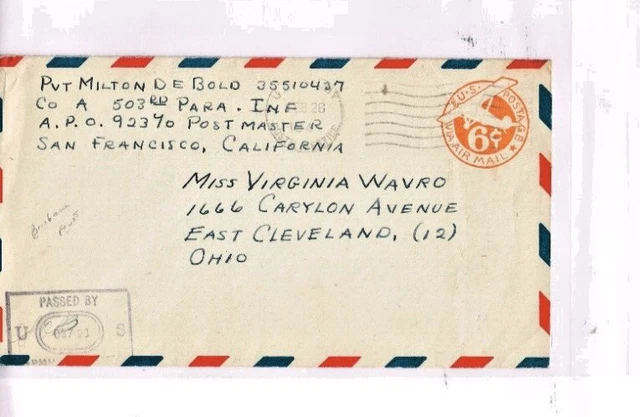 PVT MILTON DE BOLD 35510427
CO A 503RD PARA. INF
A.P.O. 92370 POSTMASTER
SAN FRANCISCO, CALIFORNIA
U.S. POSTAGE
6¢
VIA AIR MAIL
MISS VIRGINIA WAVRO
1666 CARYLON AVENUE
EAST CLEVELAND, (12)
OHIO
PASSED BY
U S